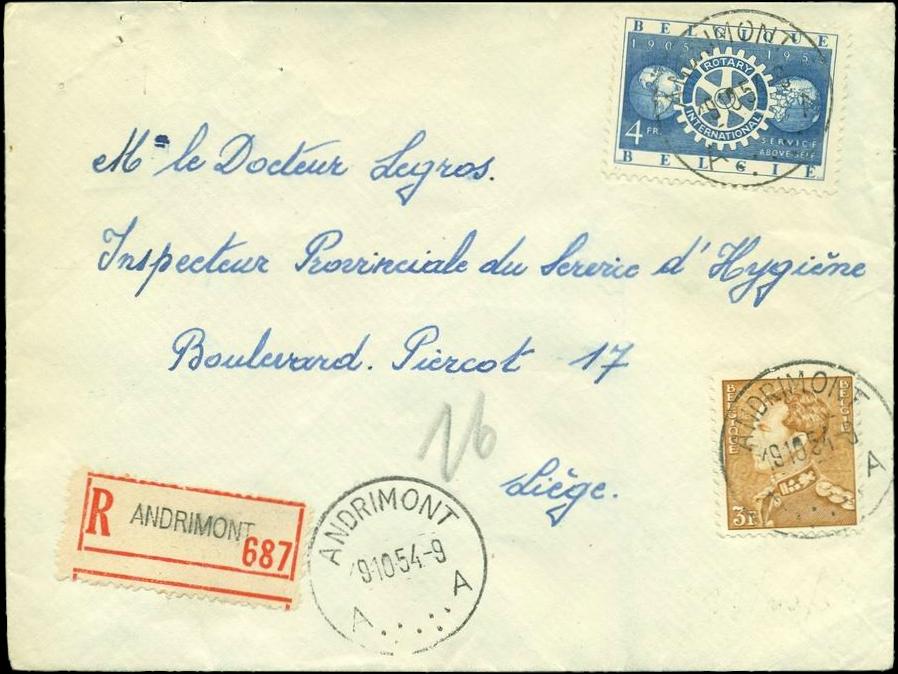 BELGIQUE
1905 1955
ROTARY
INTERNATIONAL
4 FR.
SERVICE
ABOVE SELF
BELGIË
Mr le Docteur Legros.
Inspecteur Provinciale du Service d'Hygiène
Boulevard. Piercot 17
Liège.
BELGIQUE
BELGIE
3F
ANDRIMONT
9.10.54
A
R ANDRIMONT
687
ANDRIMONT
9.10.54-9
A A